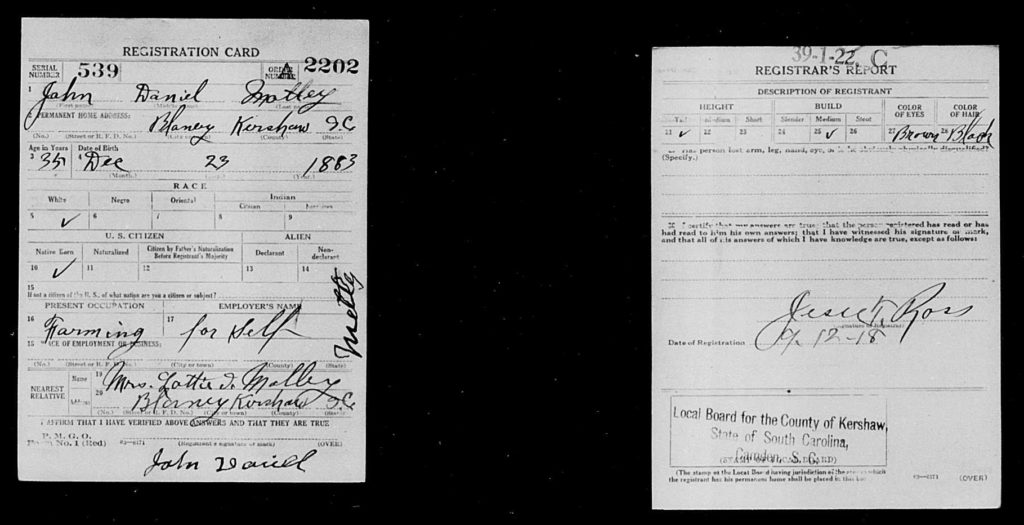 REGISTRATION CARD
SERIAL NUMBER 539 ORDER NUMBER A 2202
1 John Daniel Motley
(First name) (Middle name) (Last name)
2 PERMANENT HOME ADDRESS:
Blaney Kershaw S.C.
(No.) (Street or R. F. D. No.) (City or town) (County) (State)
Age in Years Date of Birth
3 4 Dec 23 1883
(Month.) (Day.) (Year.)
RACE
White Negro Oriental Indian
Citizen Noncitizen
5 ✓ 6 7 8 9
U. S. CITIZEN ALIEN
Native Born Naturalized Citizen by Father's Naturalization Before Registrant's Majority Declarant Non-declarant
10 ✓ 11 12 13 14
15
If not a citizen of the U. S., of what nation are you a citizen or subject?
PRESENT OCCUPATION EMPLOYER'S NAME
16 Farming 17 for Self
PLACE OF EMPLOYMENT OR BUSINESS:
(No.) (Street or R. F. D. No.) (City or town) (County) (State)
NEAREST RELATIVE Name 19 Mrs. Lottie Motley
Address 20 Blaney Kershaw S.C.
(No.) (Street or R. F. D. No.) (City or town) (County) (State)
I AFFIRM THAT I HAVE VERIFIED ABOVE ANSWERS AND THAT THEY ARE TRUE
P. M. G. O.
Form No. 1 (Red) 03—6171 (Registrant's signature or mark) (OVER)
John Daniel
Motley
39-1-22. C
REGISTRAR'S REPORT
DESCRIPTION OF REGISTRANT
HEIGHT BUILD COLOR OF EYES COLOR OF HAIR
Tall Medium Short Slender Medium Stout
21 ✓ 22 23 24 25 ✓ 26 27 Brown 28 Black
29 Has person lost arm, leg, hand, eye, or is he obviously physically disqualified?
(Specify.)
30 I certify that my answers are true; that the person registered has read or has had read to him his own answers; that I have witnessed his signature or mark, and that all of his answers of which I have knowledge are true, except as follows:
Jesse T. Ross
(Signature of Registrar)
Date of Registration 9-12-18
Local Board for the County of Kershaw,
State of South Carolina,
Camden, S. C.
(STAMP OF LOCAL BOARD)
(The stamp of the Local Board having jurisdiction of the area in which the registrant has his permanent home shall be placed in this box.)
03—6171 (OVER)